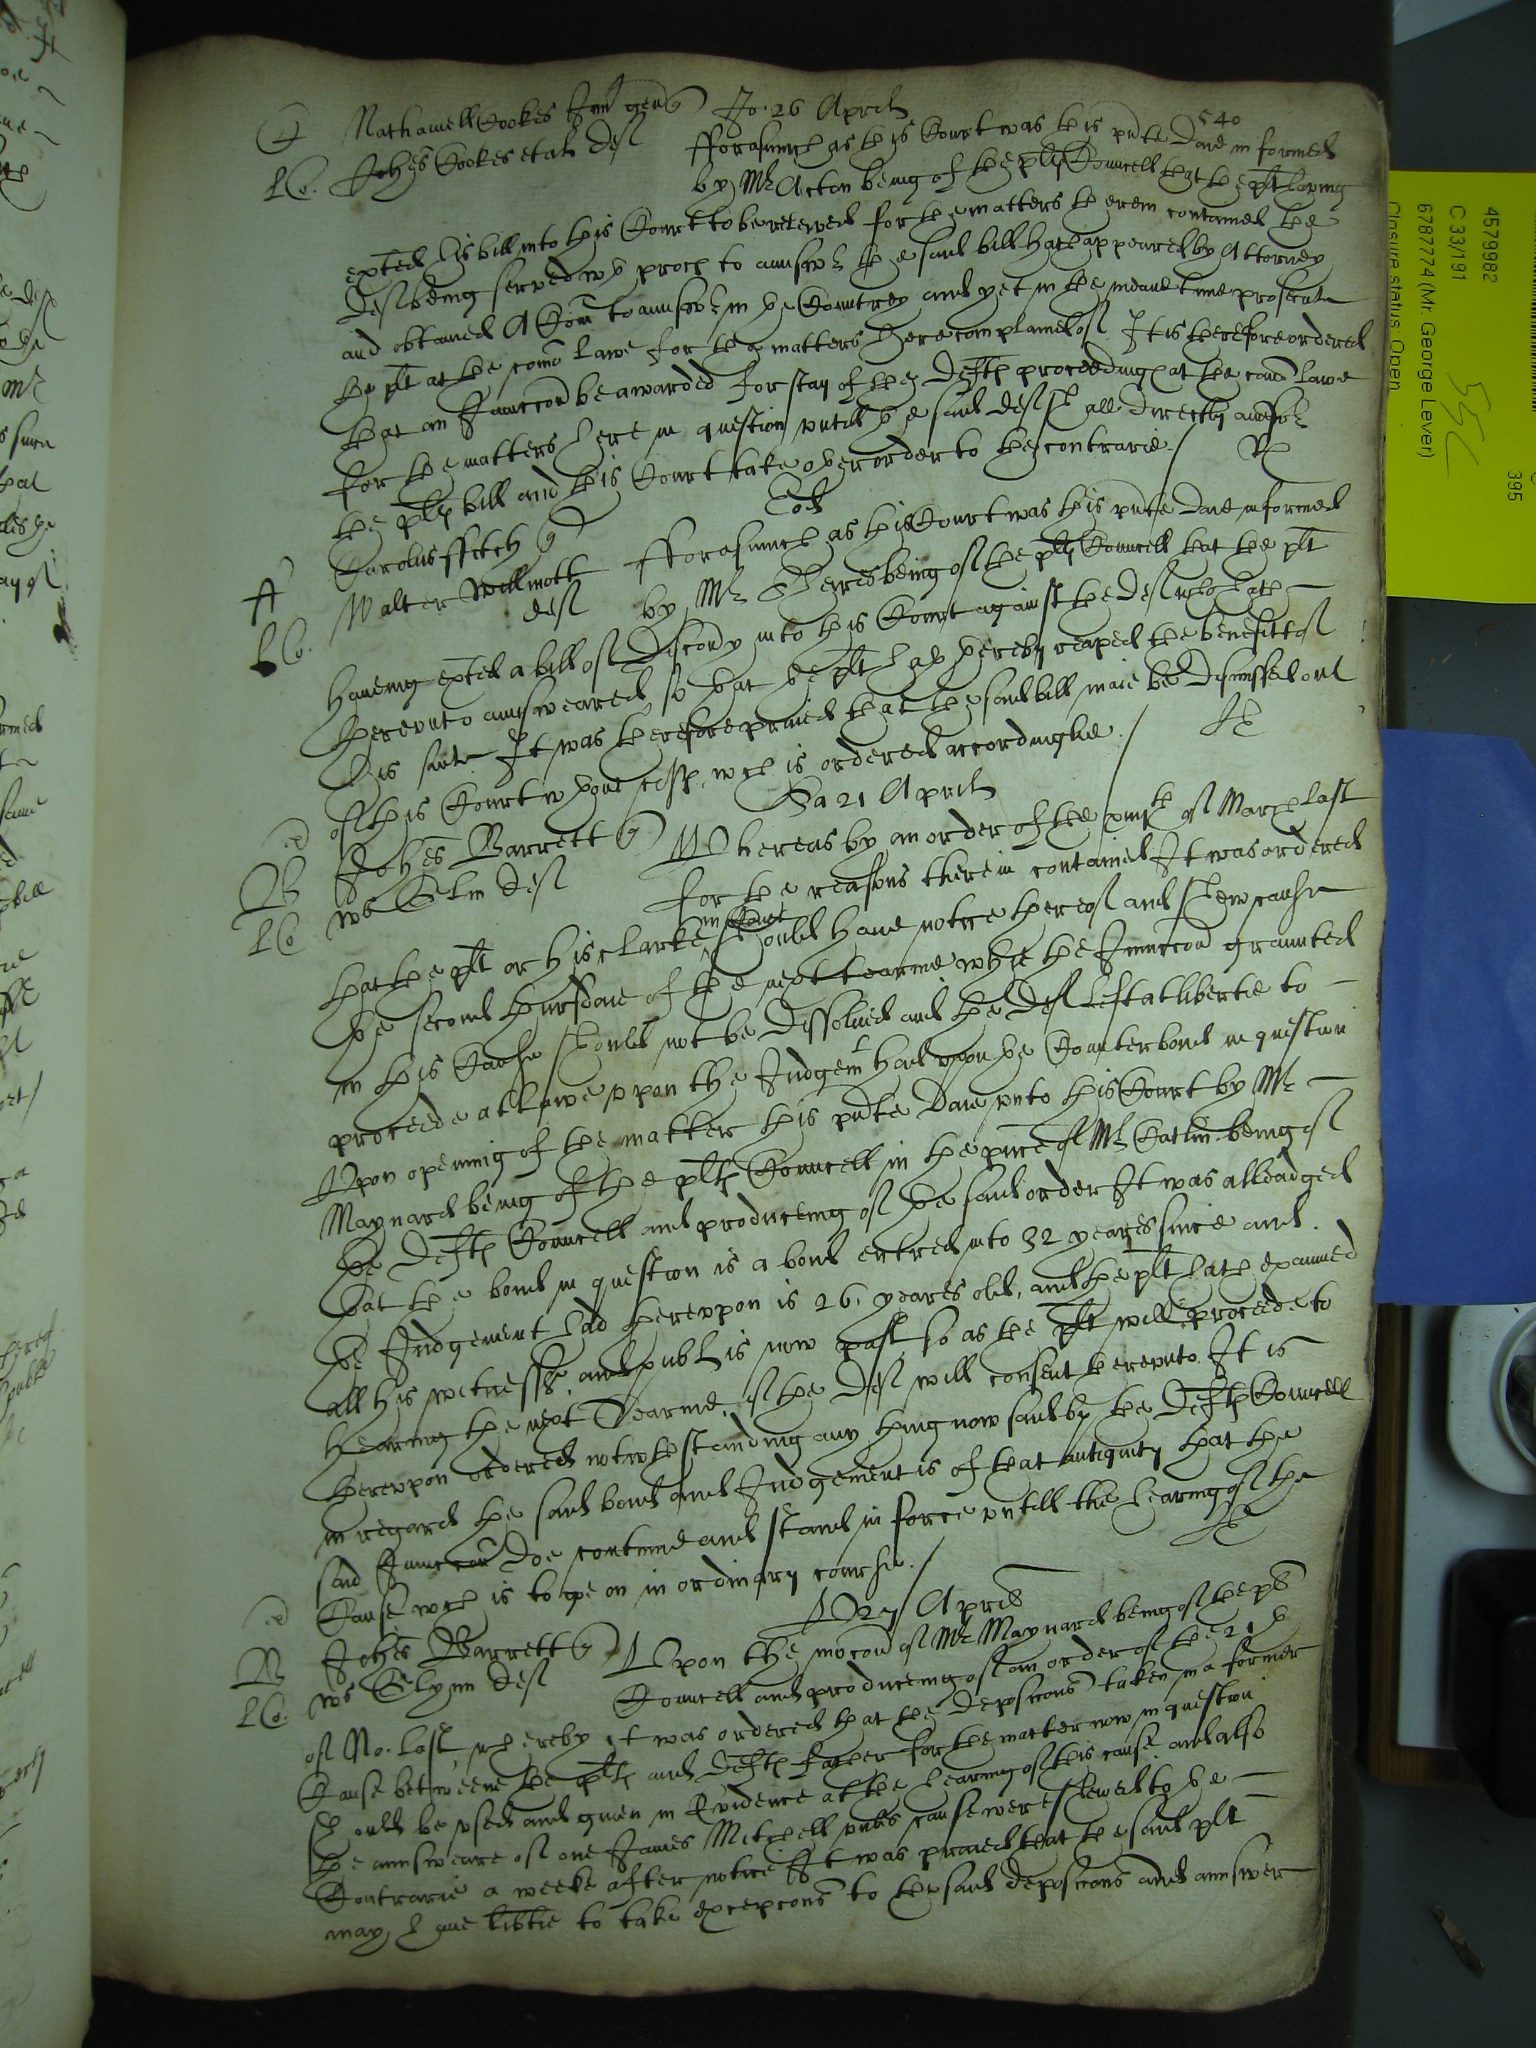 540
Nathaniell Cookes Jun gen q Jo. 26 Aprilis
Johes Cookes et al def fforasmuch as this Court was this pnte daie informed
by Mr Acton being of the plts Councell that the plt having
exhted his bill into this Court to be releived for the matters therein contained the
def being served wth proces to aunswr the said bill hath appeared by Attorney
and obtained A Com to aunswr in the Countrey and yet in the meane time prosecute
the plt at the comon lawe for the matters here complained of It is therefore ordered
that an Iniunccon be awarded for stay of the defts proceedings at the comon lawe
for the matters here in question untill the said def shall directly answr
the plts bill and this Court take other order to the contrarie
Eod
Carolus ffitch q fforasmuch as this Court was this pnte daie informed
Walter Willmott def by Mr being of the plts Councell that the plt
haveing exhted a bill of discovy into this Court against the def who hath
thereunto aunsweared so that the plt hath thereby reaped the benefitt of
his suite It was therefore praied that the said bill maie be dismissed out
of this Court wthout costs, wch is ordered accordinglie
Sa 21 Aprilis
Johes Barrett q Whereas by an order of the of March last
Wm Glin def for the reasons therein contained It was ordered
that the plt or his clarke in Court should have notice thereof and shew cause
the second thursdaie of the next tearme whie the Iniunccon graunted
in this Cause should not be dissolved and the def left at libertie to
proceede at lawe upon the Judgemt had upon the Counterbond in question
Upon opening of the matter this pnte daie unto this Court by Mr
Maynard being of the plts Councell in the pnce of Mr Catlin being of
the defts Councell and produceing of the said order It was alleadged
that the bond in question is a bond entred into 32 yeares since and
the Judgement had thereupon is 26 yeares old, and the plt hath examined
all his witnesses, and publ is now past so as the plt will proceede to
hearing the next Tearme, if the def will consent thereunto It is
thereupon ordered notwthstanding any thing now said by the defts Councell
in regard the said bond and Judgement is of that antiquity that the
said Iniunccon doe contynue and stand in force untill the hearing of the
Cause wch is to goe on in ordinary course.
27 Aprilis
Johes Barrett q Upon the mocon of Mr Maynard being of the plts
Wm Glynn def Councell and produceing of an order of the 21th
of No. last whereby it was ordered that the deposicons taken in a former
Cause betweene the plts and defts father for the matter now in question
should be used and given in Evidence at the hearing of this cause and also
the aunsweare of one James Mitchell unles cause were shewed to the
Contrarie a weeke after notice It was praied that the said plt
may have libtie to take excepcons to the said deposicons and annswer
4579982
C 33/191
6787774 (Mr. George Lever)
Closure status: Open
395